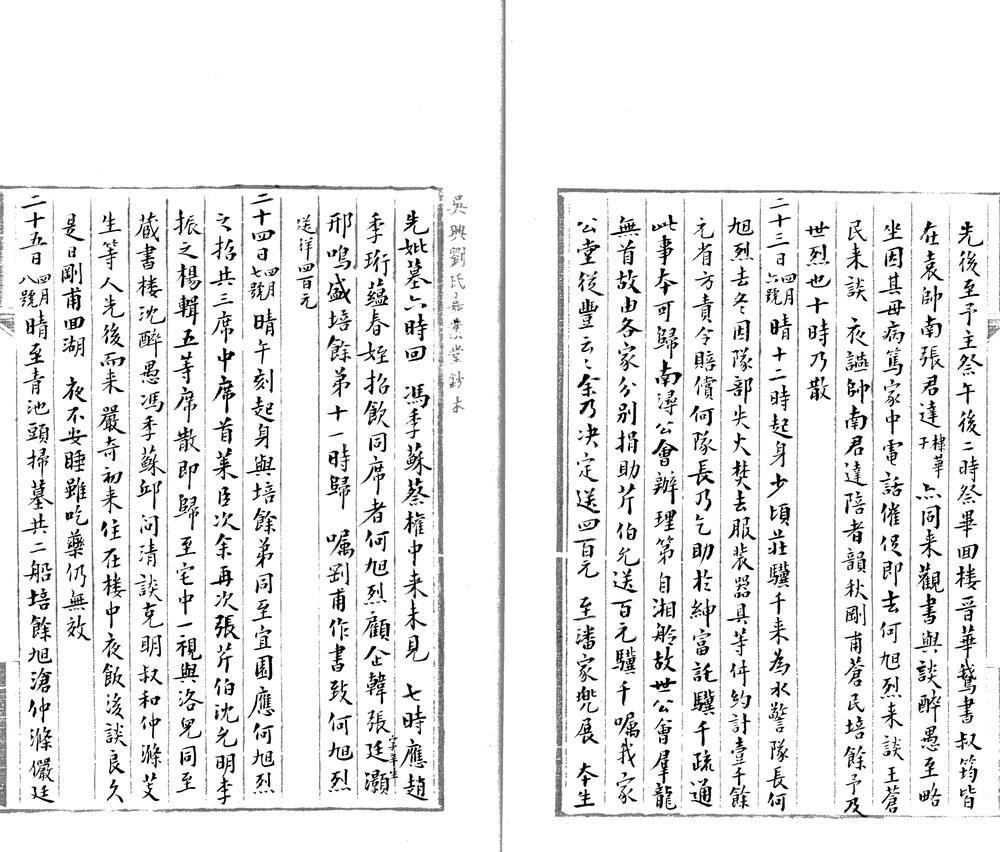 先後至予主祭午後二時祭畢回樓晋華鵝書叔筠皆
在袁帥南張君達棣華子亦同来觀書與談醉愚至略
坐因其母病篤家中電話催促即去何旭烈来談王蒼
民来談 夜讌帥南君達陪者韻秋剛甫蒼民培餘予及
世烈也十時乃散
二十三日四月六號晴十二時起身少頃莊驥千来為水警隊長何
旭烈去冬因隊部失火焚去服裝器具等件約計壹千餘
元省方責令賠償何隊長乃乞助於紳富託驥千疏通
此事本可歸南潯公會辦理第自湘舲故世公會羣龍
無首故由各家分別捐助芹伯允送百元驥千嘱我家
公堂從豐云云余乃决定送四百元 至潘家兜展 本生
吳興劉氏嘉業堂鈔本
先妣墓六時回 馮季蘇蔡權中来未見 七時應趙
季珩蘊春姪招飲同席者何旭烈顧企韓張廷灝
邢鳴盛培餘弟十一時歸 嘱剛甫作書致何旭烈
送洋四百元
二十四日四月七號晴午刻起身與培餘弟同至宜園應何旭烈
之招共三席中席首萊臣次余再次張芹伯沈允明李
振之楊輯五等席散即歸至宅中一視與洛兒同至
藏書楼沈醉愚馮季蘇邱问清談克明叔和仲滌艾
生等人先後而来嚴奇初来住在楼中夜飯後談良久
是日剛甫回湖 夜不安睡雖吃藥仍無效
二十五日四月八號晴至青池頭掃墓共二船培餘旭滄仲滌儼廷